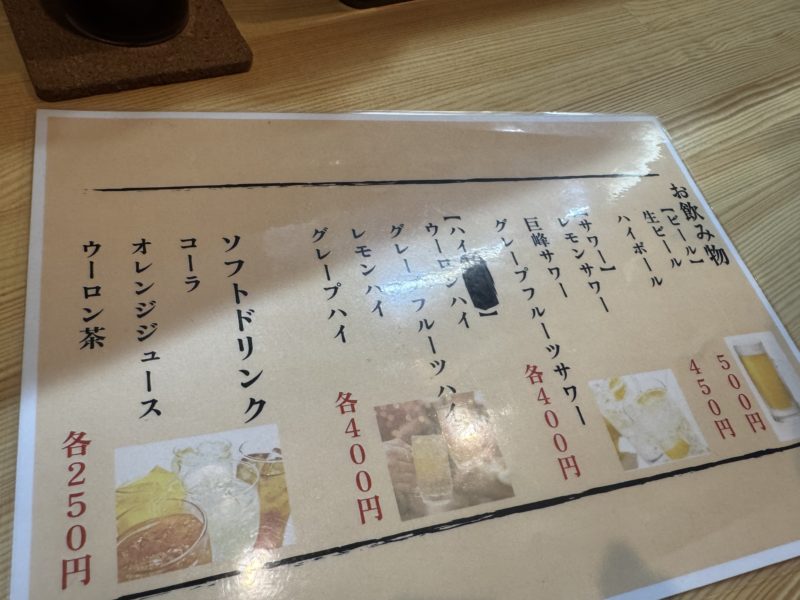 お飲み物
【ビール】
生ビール
500円
ハイボール
450円
【サワー】
レモンサワー
巨峰サワー
グレープフルーツサワー
各400円
【ハイ】
ウーロンハイ
グレープフルーツハイ
レモンハイ
グレープハイ
各400円
ソフトドリンク
コーラ
オレンジジュース
ウーロン茶
各250円